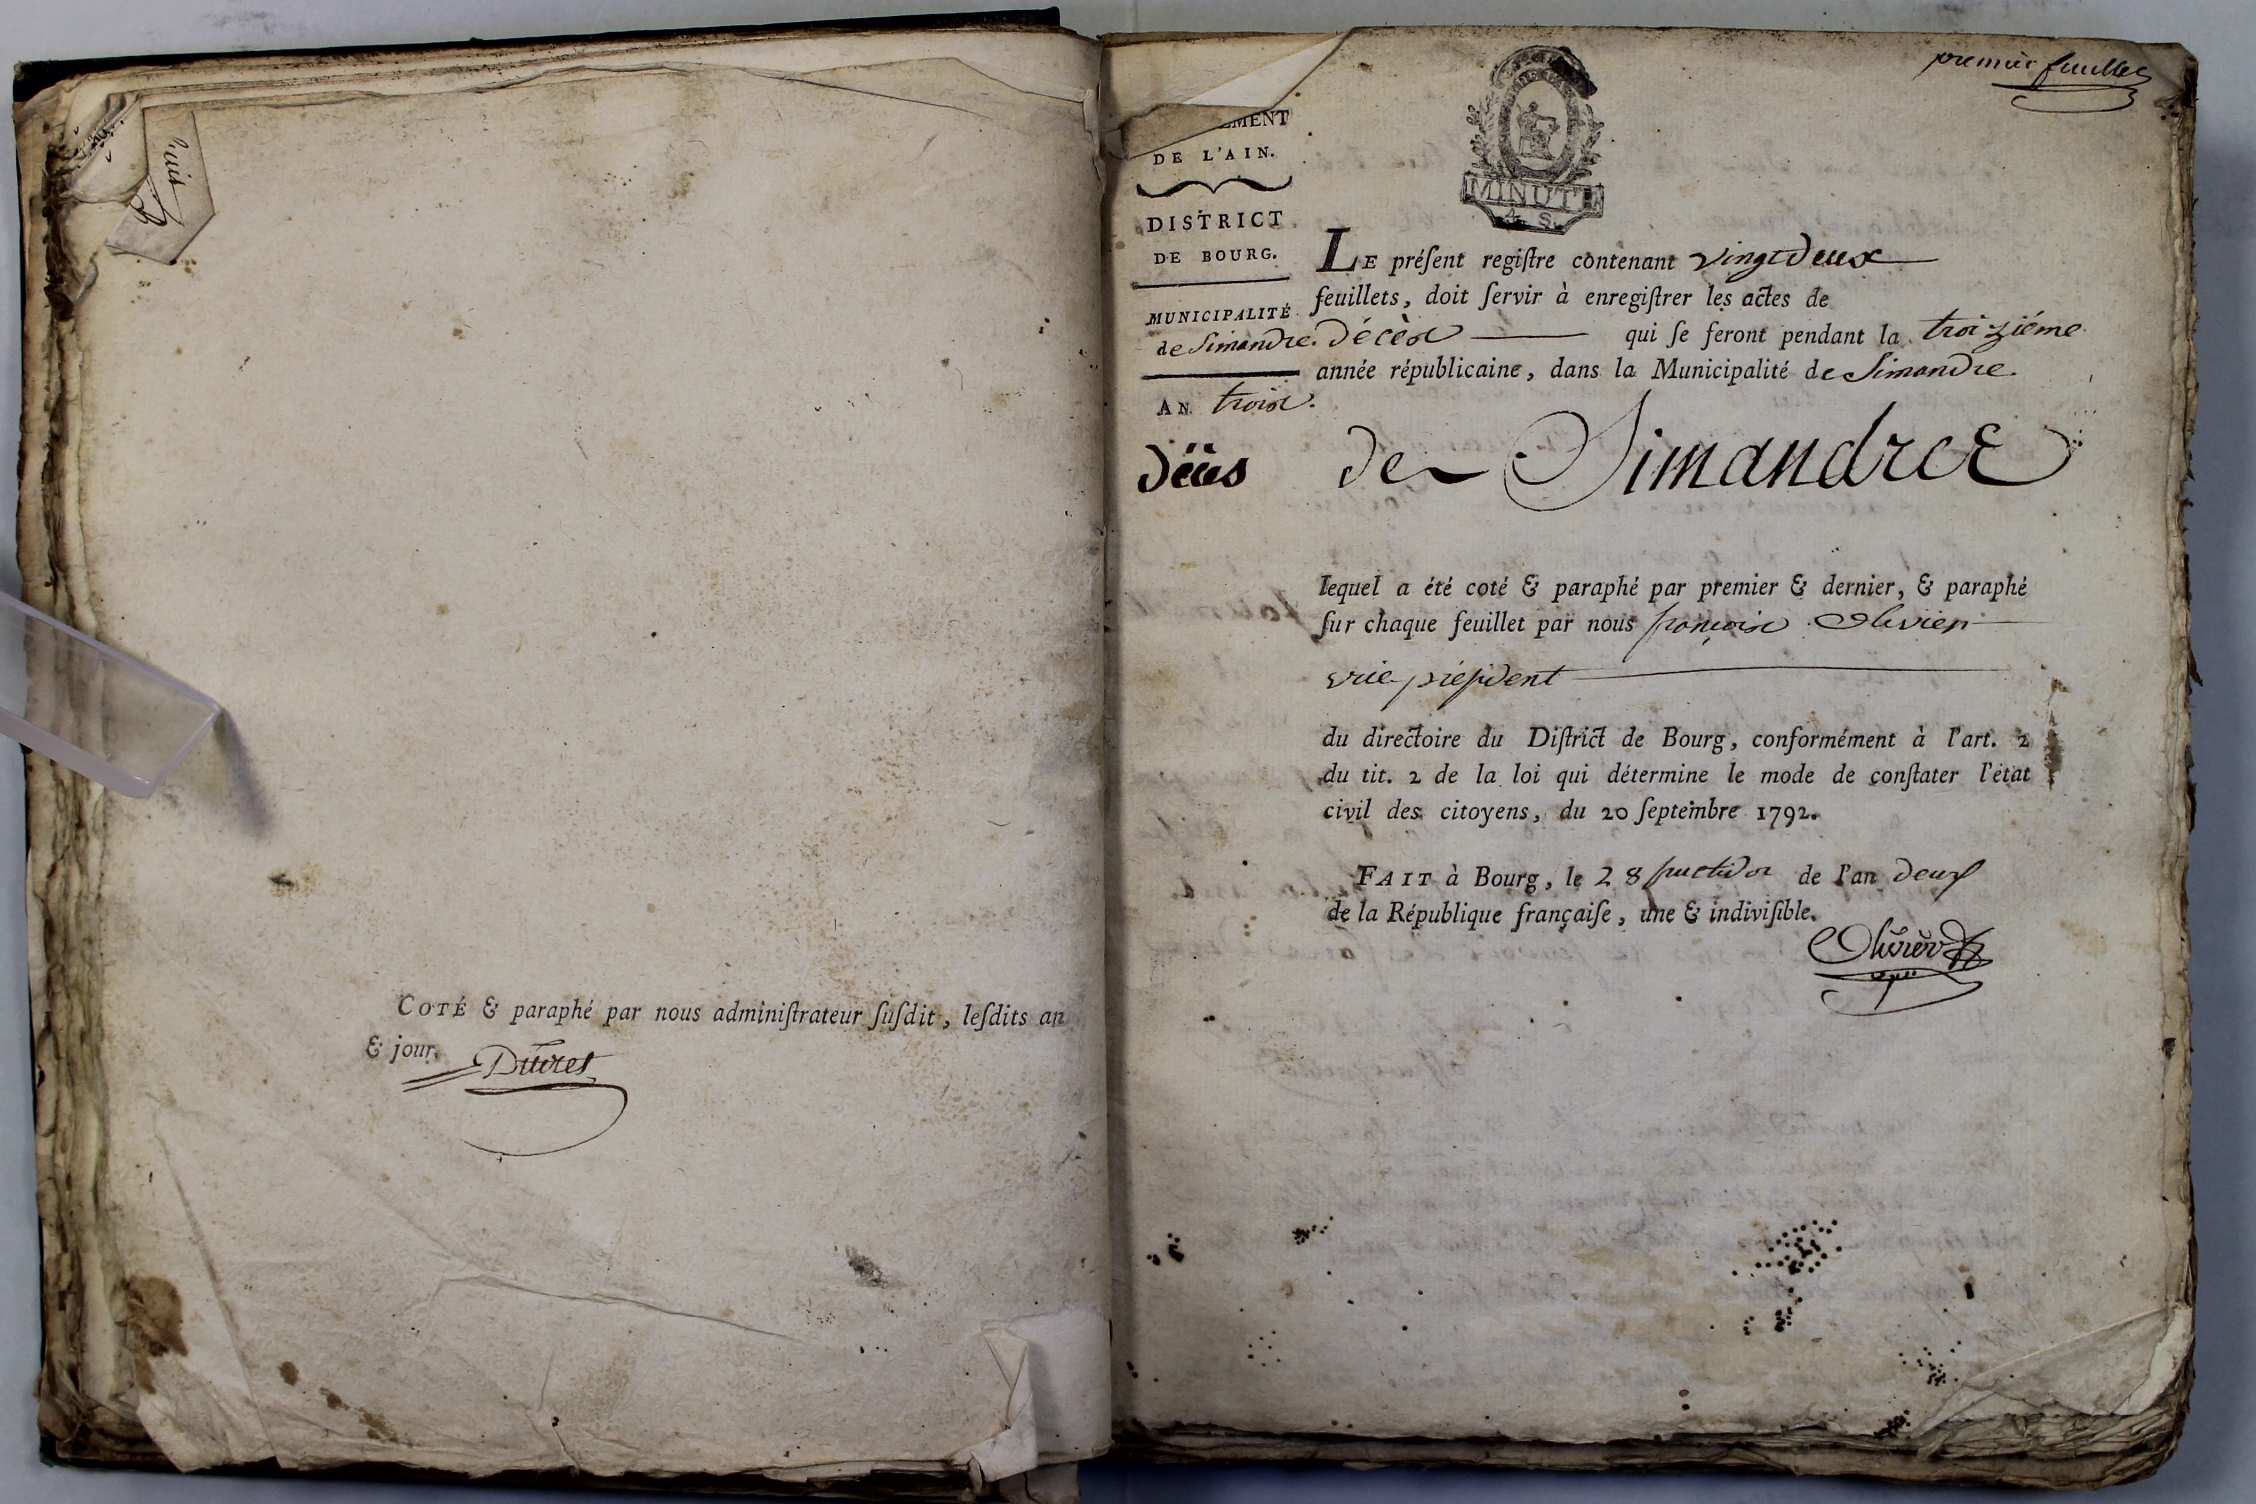 COTÉ & paraphé par nous adminiſtrateur ſuſdit, leſdits an
& jour.
premier feuillet
MINUTE
4 S.
EMENT
DE L'AIN.
DISTRICT
DE BOURG.
MUNICIPALITÉ
de Simandre.
AN troix.
LE préſent regiſtre contenant vingt deux
feuillets, doit ſervir à enregiſtrer les actes de
décès qui ſe feront pendant la troiziéme
année républicaine, dans la Municipalité de Simandre.
décès de Simandre
lequel a été coté & paraphé par premier & dernier, & paraphé
ſur chaque feuillet par nous françois Olivier
vice président
du directoire du Diſtrict de Bourg, conformément à l'art. 2
du tit. 2 de la loi qui détermine le mode de conſtater l'état
civil des citoyens, du 20 ſeptembre 1792.
FAIT à Bourg, le 28 fructidor de l'an deux
de la République françaiſe, une & indiviſible.
Olivier